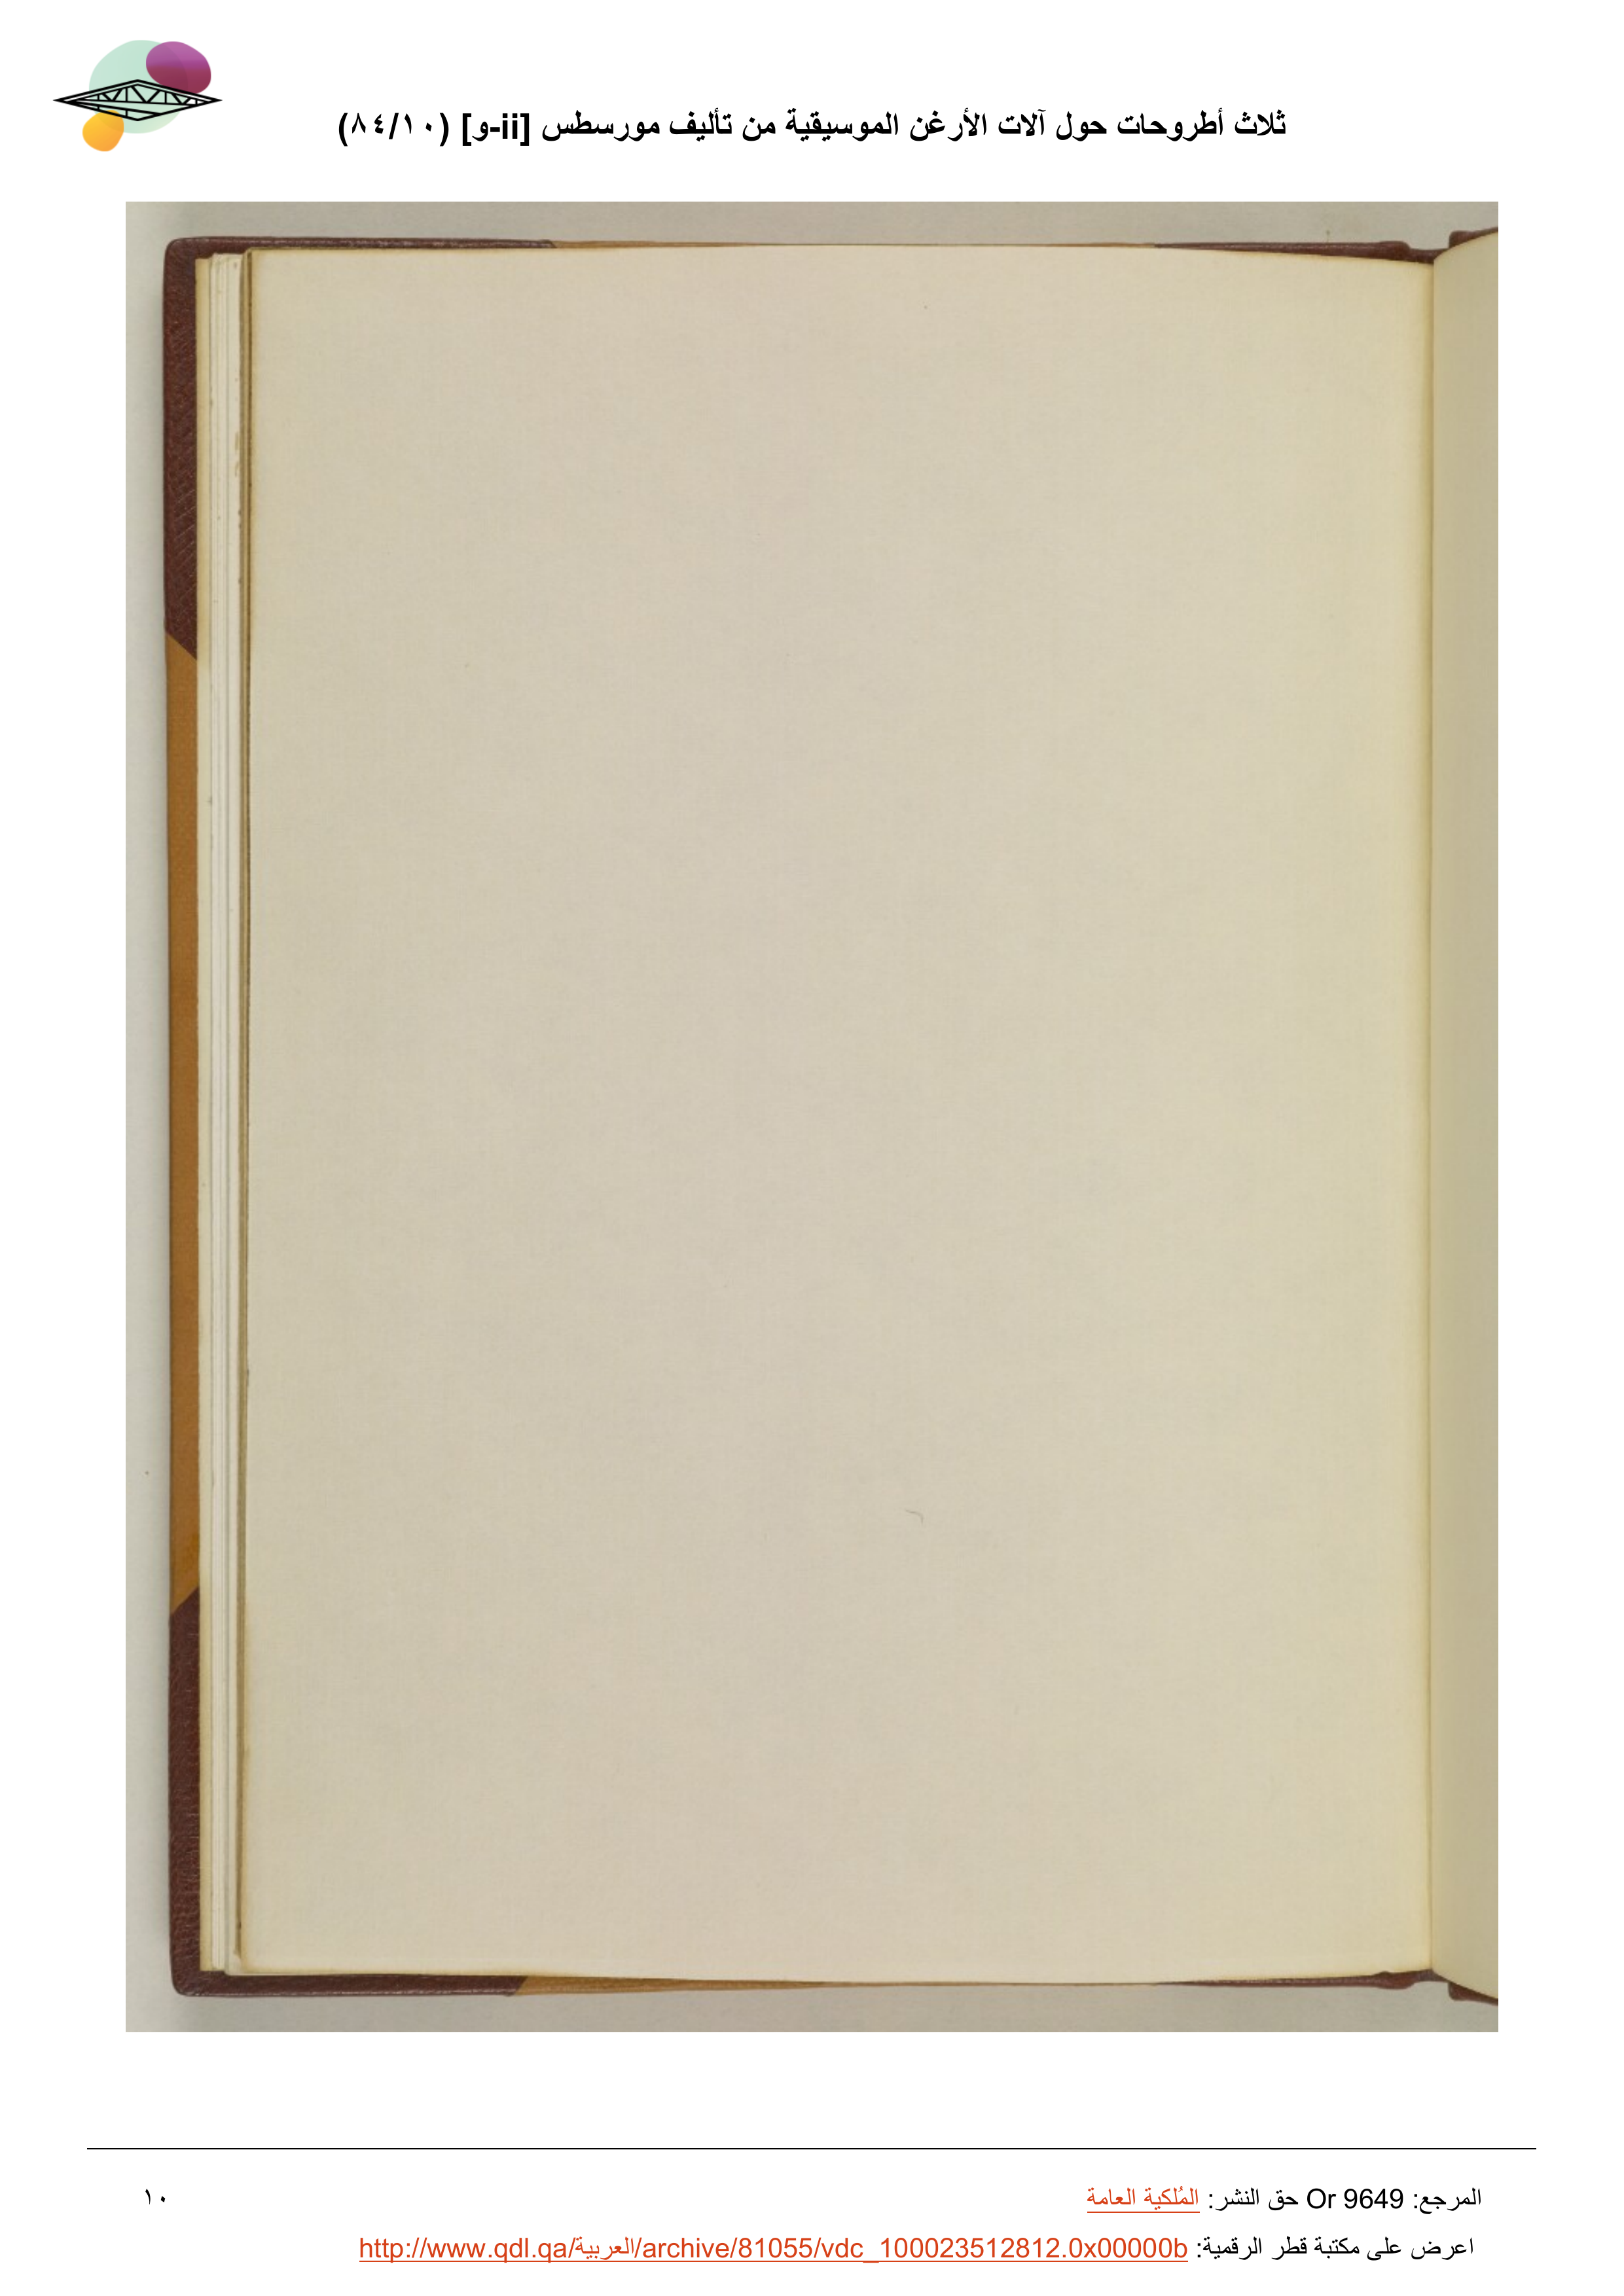 ثلاث أطروحات حول آلات الأرغن الموسيقية من تأليف مورسطس [ii-و] (٨٤/١٠)
المرجع: Or 9649 حق النشر: المُلكية العامة
١٠
اعرض على مكتبة قطر الرقمية: http://www.qdl.qa/العربية/archive/81055/vdc_100023512812.0x00000b